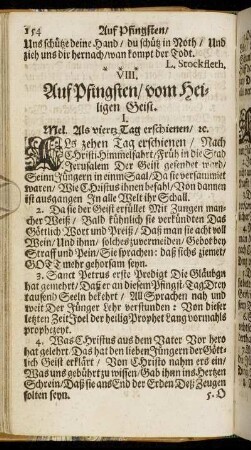 154 Auf Pfingsten/
Uns schütze deine Hand/ du schütz in Noth/ Und
zieh uns dir hernach/wan kompt der Todt.
L. Stockfleth.
* * *
VIII.
Auf Pfingsten/vom Hei-
ligen Geist.
I.
Mel. Als viertz Tag erschienen/ ꝛc.
ALs zehen Tag erschienen/ Nach
Christi Himmelfahrt/ Früh in die Stad
Jerusalem Der Geist gesendet ward/
Seinn Jüngern in einm Saal/ Da sie versammlet
waren/ Wie Christus ihnen befahl/ Von dannen
ist ausgangen In alle Welt ihr Schall.
2. Da sie der Geist erfüllet Mit Zungen man-
cher Weiß/ Bald kühnlich sie verkünden Das
Göttlich Wort und Preiß/ Daß man sie acht voll
Wein/ Und ihnn/ solches zuvermeiden/ Gebot bey
Straff und Pein/ Sie sprachen: daß sichs ziemet/
GOtt mehr gehorsam seyn.
3. Sanct Petrus erste Predigt Die Gläubgn
hat gemehrt/ Daß er an diesem Pfingst-Tag Drey
tausend Seeln bekehrt/ All Sprachen nah und
weit Der Jünger Lehr verstunden: Von dieser
letzten Zeit Joel der heilig Prophet Lang vormahls
prophezeyt.
4. Was Christus aus dem Vater Vor hero
hat gelehrt Das hat den lieben Jüngern der Gött-
lich Geist erklärt/ Von Christo nahm ers ein/
Was uns gebührt zu wissen/ Gab ihnn ins Hertzen
Schrein/ Daß sie ans End der Erden Deß Zeugen
solten seyn.
5. O